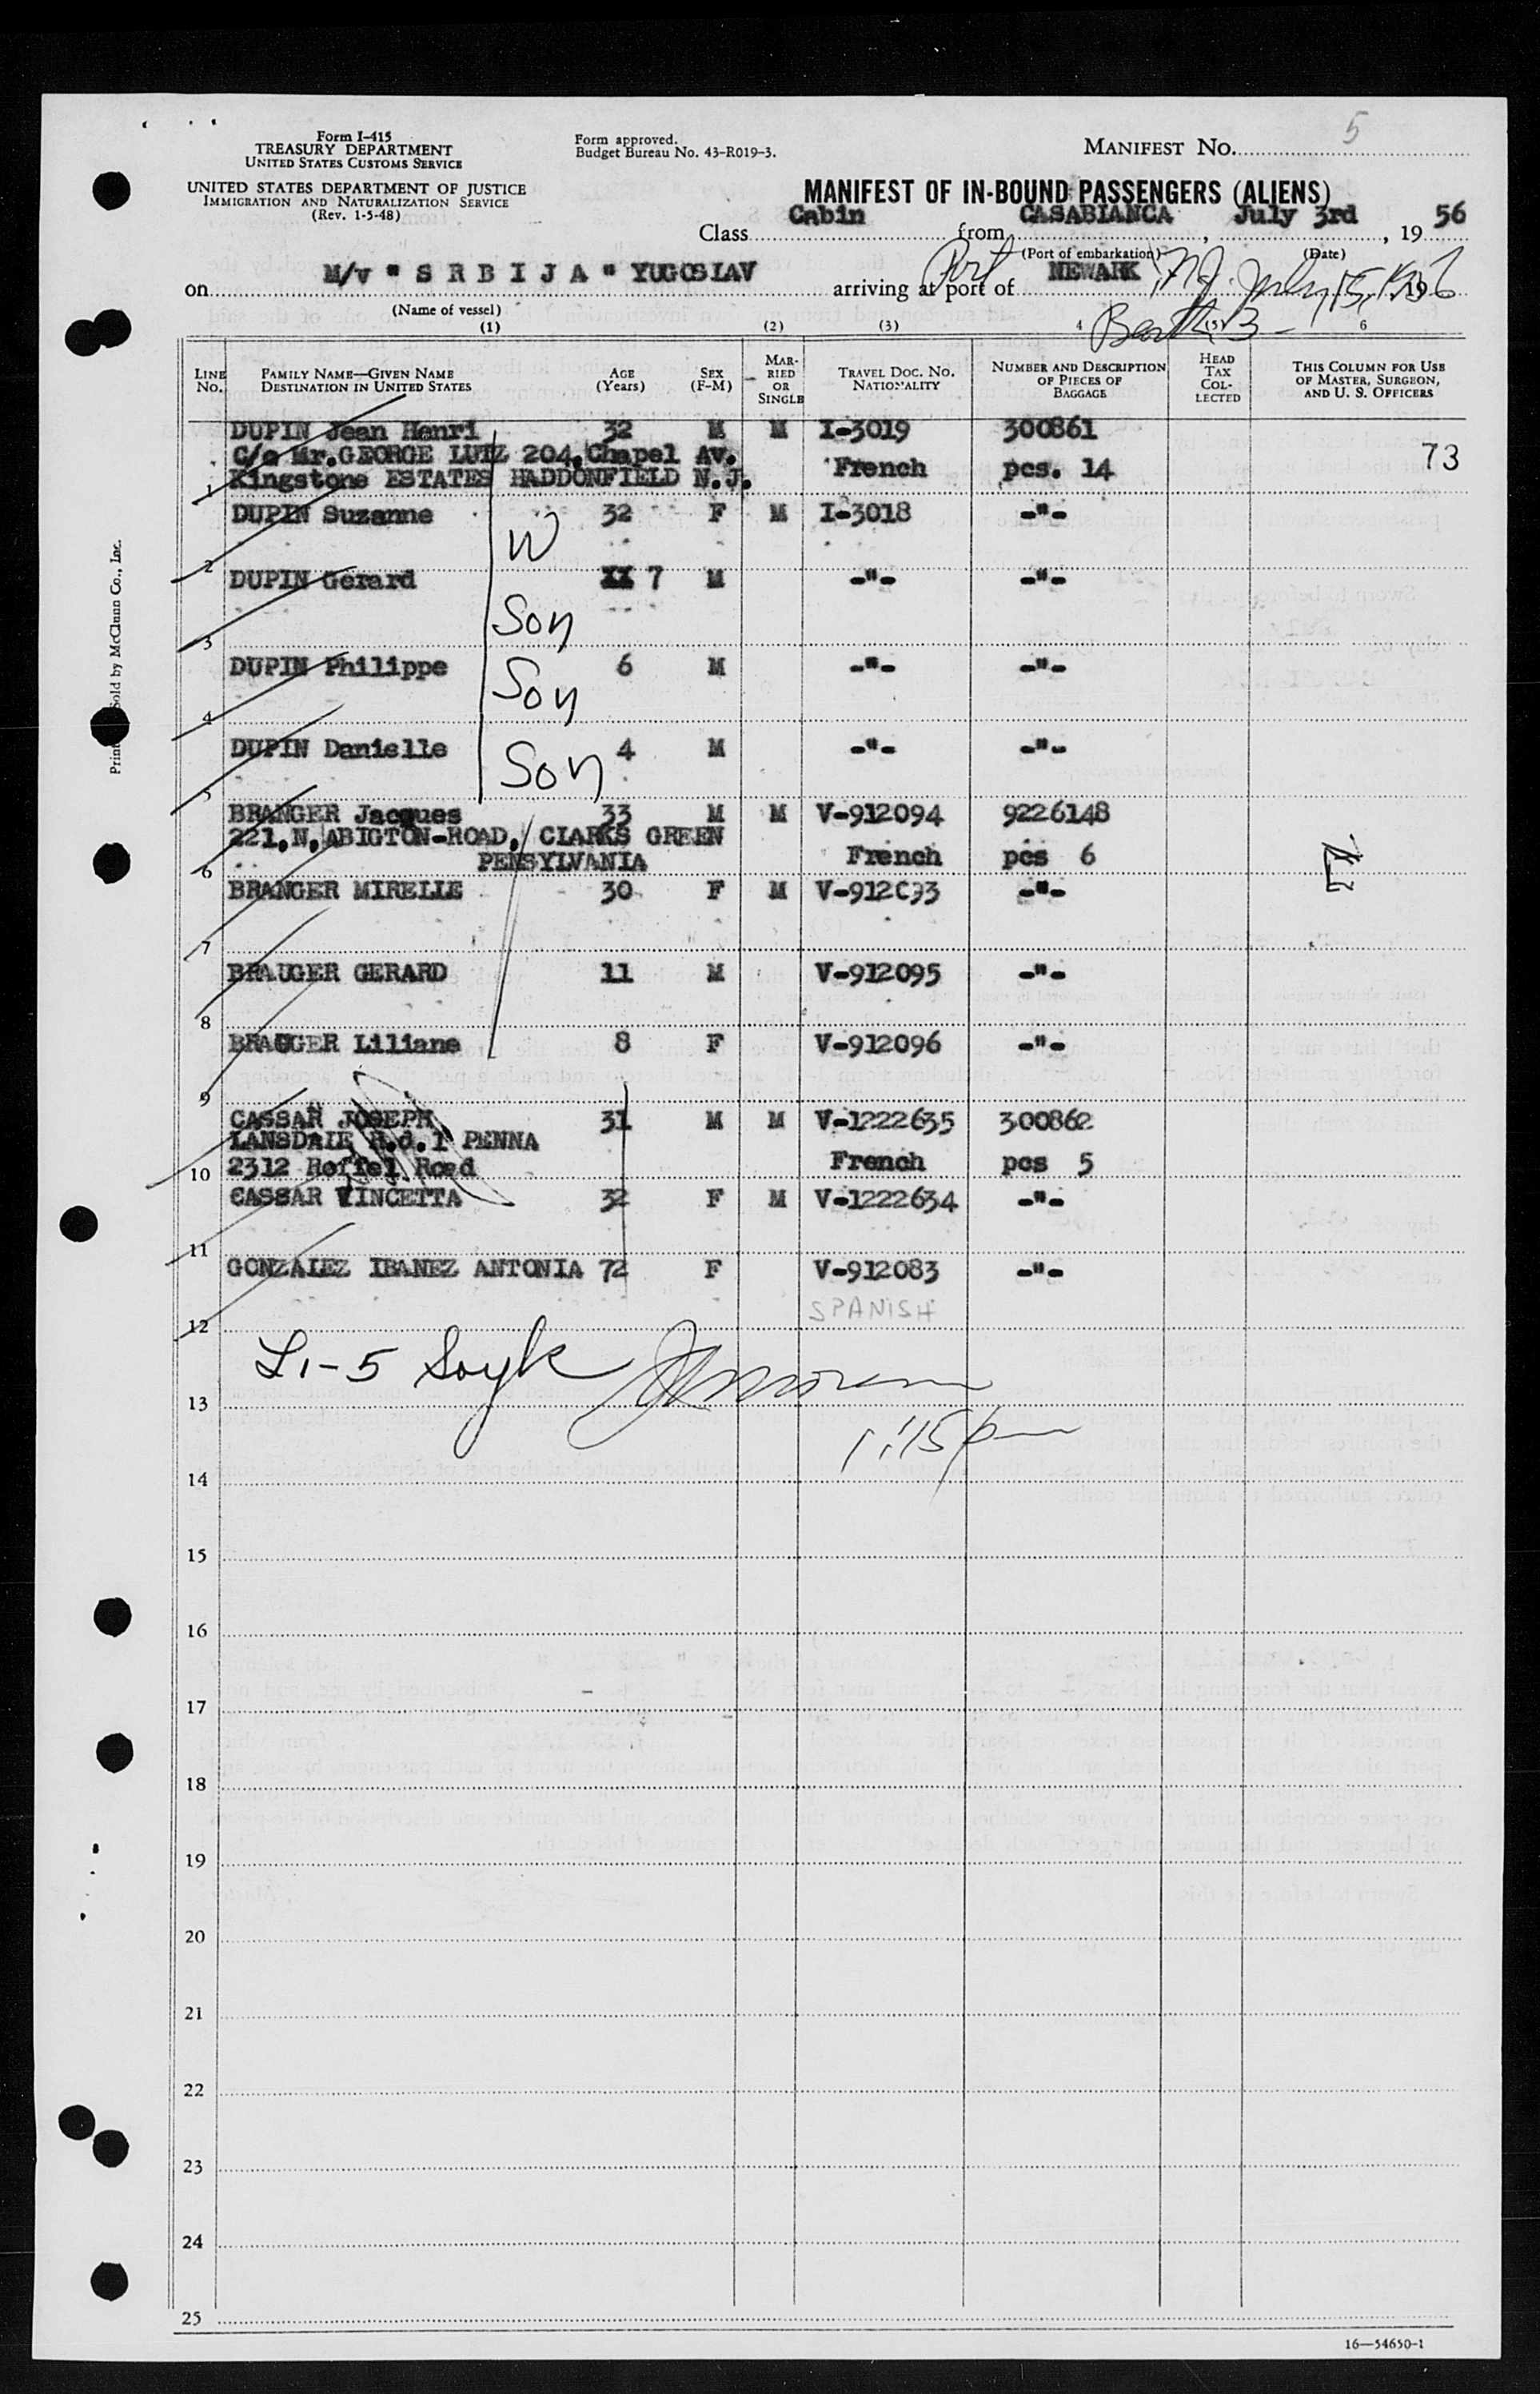 5
Form I-415
TREASURY DEPARTMENT
UNITED STATES CUSTOMS SERVICE
Form approved.
Budget Bureau No. 43-R019-3.
MANIFEST NO.
UNITED STATES DEPARTMENT OF JUSTICE
IMMIGRATION AND NATURALIZATION SERVICE
(Rev. 1-5-48)
MANIFEST OF IN-BOUND PASSENGERS (ALIENS)
Class Cabin from CASABIANCA, July 3rd, 19 56
(Port of embarkation) (Date)
on M/v " S R B I J A " YUGOSLAV arriving at port of Port NEWARK, N.J. July 15, 1956
(Name of vessel)
Berth 3
(1) (2) (3) 4 (5) 6
LINE No. FAMILY NAME—GIVEN NAME DESTINATION IN UNITED STATES AGE (Years) SEX (F-M) MARRIED OR SINGLE TRAVEL DOC. NO. NATIONALITY NUMBER AND DESCRIPTION OF PIECES OF BAGGAGE HEAD TAX COLLECTED THIS COLUMN FOR USE OF MASTER, SURGEON, AND U. S. OFFICERS
DUPIN Jean Henri 32 M M I-3019 300861
C/o Mr.GEORGE LUTZ 204,Chapel Av. French pcs. 14 73
1 Kingstone ESTATES HADDONFIELD N.J.
DUPIN Suzanne 32 F M I-3018 -"-
W
2
DUPIN Gerard XX 7 M -"- -"-
Son
3
DUPIN Philippe 6 M -"- -"-
Son
4
DUPIN Danielle 4 M -"- -"-
Son
5
BRANGER Jacques 33 M M V-912094 9226148
221,N,ABIGTON-ROAD, CLARKS GREEN
6 PENSYLVANIA French pcs 6
BRANGER MIRELLE 30 F M V-912093 -"-
7
BRAUGER GERARD 11 M V-912095 -"-
8
BRAUGER Liliane 8 F V-912096 -"-
9
CASSAR JOSEPH 31 M M V-1222635 300862
LANSDALE R.d.1 PENNA
10 2312 Roffel Road French pcs 5
CASSAR VINCETTA 32 F M V-1222634 -"-
11
GONZALEZ IBANEZ ANTONIA 72 F V-912083 -"-
SPANISH
12
L1-5 Soyk
13
1:15 pm
14
15
16
17
18
19
20
21
22
23
24
25
16—54650-1
Sold by McClunn Co., Inc.